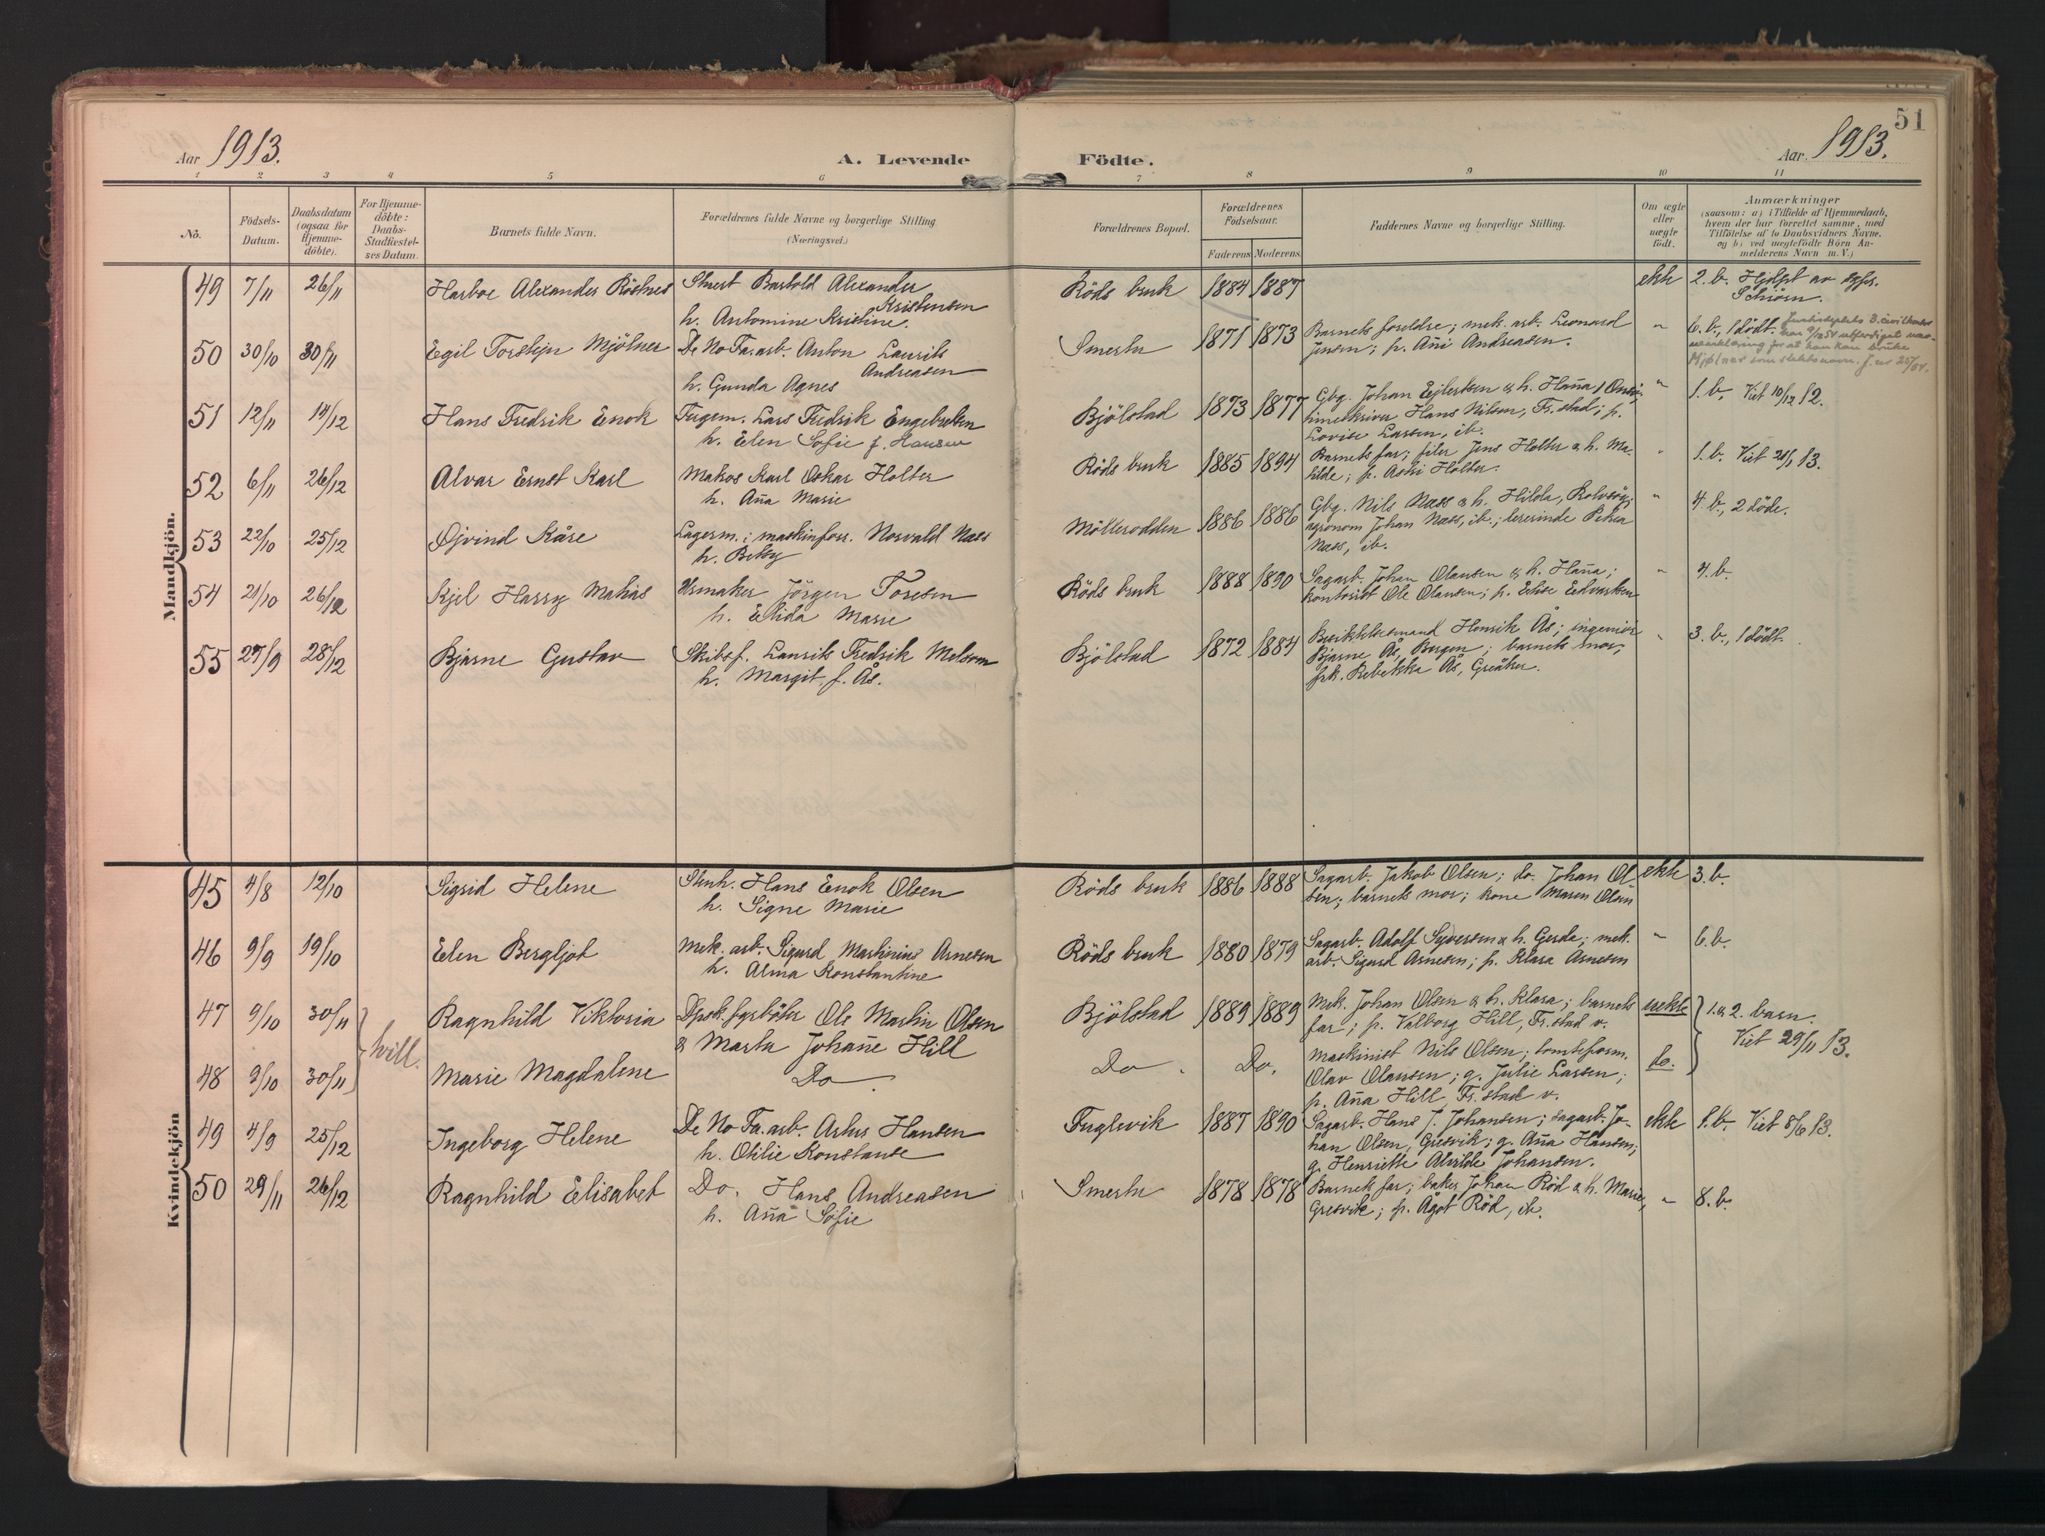 51
Aar 1913.
A. Levende
Födte.
Aar. 1913.
1 2 3 4 5 6 7 8 9 10 11
No.
Födsels-
Datum.
Daabsdatum
(ogsaa for
Hjemme-
döbte).
For Hjemme-
döbte:
Daabs-
Stadfæstel-
ses Datum.
Barnets fulde Navn.
Forældrenes fulde Navne og borgerlige Stilling
(Næringsvei.)
Forældrenes Bopæl.
Forældrenes
Födselsaar.
Faderens Moderens
Faddernes Navne og borgerlige Stilling.
Om ægte
eller
uægte
födt.
Anmærkninger
(saasom: a) i Tilfælde af Hjemmedaab,
hvem der har forrettet samme, med
Tilföielse af to Daabsvidners Navne.
og b) ved uægtefödte Börn An-
melderens Navn m. V.)
Mandkjön.
49 7/11 26/11
Harboe Alexander Röstnes
Barthold Alexander
Kristensen
h. Antomine Kristine.
Röds bruk 1884 1887
ekte
2. b. Hjelpt av
Schiörn.
50 30/10 30/11
Egil Torstejn Mjölner
De No Fa. arb. Anton Laurits
Andreasen
h. Gunda Agnes
Smertu 1871 1873
Barnets foreldre; mek. arb. Leonard
Jensen; p. Añi Andreasen.
"
6. b., 1 dödt.
Mjølner som slektsnavn. J. nr 25/54.
51 12/11 14/12
Hans Fredrik Enok
Lars Fredrik Engebretsen
h. Elen Sofie f. Hansen
Bjölstad 1873 1877
Gbg. Johan Ejlertsen & h. Haña,
Hans Nilsen, Fr.stad; p.
Lovise Larsen, ib.
"
1. b. Viet 10/12 12.
52 6/11 26/12
Alvar Ernst Karl
Matros Karl Oskar Holter
h. Aña Marie
Röds bruk 1885 1894
Barnets far; filer Jens Holter & h. Ma-
tilde; p. Astri Holter.
"
1. b. Viet 21/1 13.
53 22/10 25/12
Øjvind Kåre
Lagerm. i maskinforr. Norvald Næss
h. Betsy
Mölleroddèn 1886 1886
Gbg. Nils Næss & h. Hilda, Rolvsöy;
agronom Johan Næss, ib.; lererinde Petra
Næss, ib.
"
4 b., 2 döde.
54 21/10 26/12
Kjel Harry Matias
Urmaker Jörgen Toresen
h. Elida Marie
Röds bruk 1888 1890
Sagarb. Johan Olausen & h. Haña;
kontorist Ole Olausen; p. Elise Edvartsen
"
4. b.
55 27/9 28/12
Bjarne Gustav
Skibsf. Laurits Fredrik Melsom
h. Margit f. Ås.
Bjölstad 1872 1884
Henrik Ås; ingeniör
Bjarne Ås, Bergen; barnets mor;
frk. Rebekka Ås, Greåker.
"
3. b., 1 dödt.
Kvindekjön
45 4/8 12/10
Sigrid Helene
Stenh. Hans Enok Olsen
h. Signe Marie
Röds bruk 1886 1888
Sagarb. Jakob Olsen; do. Johan Ol-
sen; barnets mor; kone Maren Olsen
ekte
3. b.
46 9/9 19/10
Elen Bergljot
Mek. arb. Sigurd Martinius Arnesen
h. Alma Konstantine
Röds bruk 1880 1879
Sagarb. Adolf Syversen & h. Gerda; mek.
arb. Sigurd Arnesen; p. Klara Arnesen
"
6. b.
47 9/10 30/11
tvill.
Ragnhild Viktoria
Dpsk. fyrböter Ole Martin Olsen
& Marta Johañe Hill
Bjölstad 1889 1889
Mek. Johan Olsen & h. Klara; barnets
far; p. Valborg Hill, Fr.stad v.
uekte
1. & 2. barn.
Viet 29/11 13.
48 9/10 30/11
Marie Magdalene
Do
Do. Do.
Maskinist Nils Olsen; tomteform.
Olav Olausen; g. Julie Larsen;
p. Aña Hill, Fr.stad v.
do.
49 4/9 25/12
Ingeborg Helene
De No Fa. arb. Artur Hansen
h. Otilie Konstanse
Fuglevik 1887 1890
Sagarb. Hans J. Johansen; sagarb. Jo-
han Olsen, Gresvik; g. Aña Hansen;
g. Henriette Alvilde Johansen.
ekte
1. b. Viet 8/6 13.
50 29/11 26/12
Ragnhild Elisabet
Do. Hans Andreasen
h. Aña Sofie
Smertu 1878 1878
Barnets far; baker Johan Röd & h. Marie,
Gresvik; p. Ågot Röd, ib.
"
8. b.